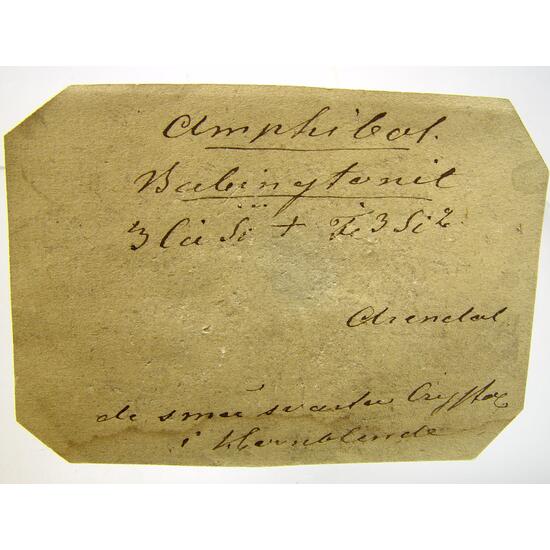 Amphibol.
Babingtonit
3 Ċa S⃛i + Ḟe3 S⃛i2.
Arendal
de smaa svarte Crystal
i Hornblende